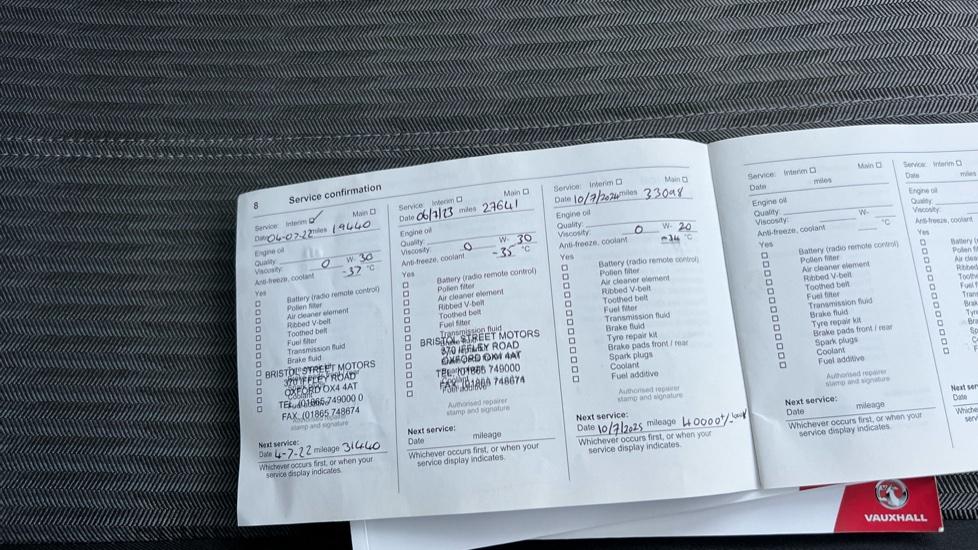 8 Service confirmation
Service: Interim Main
Date 04-07-22 miles 19440
Engine oil
Quality:
Viscosity: 0 W- 30
Anti-freeze, coolant -37 °C
Yes
Battery (radio remote control)
Pollen filter
Air cleaner element
Ribbed V-belt
Toothed belt
Fuel filter
Transmission fluid
Brake fluid
BRISTOL STREET MOTORS
370 IFFLEY ROAD
OXFORD OX4 4AT
TEL (01865 749000 0
FAX. (01865 748674
stamp and signature
Next service:
Date 4-7-22 mileage 31440
Whichever occurs first, or when your
service display indicates.
Service: Interim Main
Date 06/7/23 miles 27641
Engine oil
Quality:
Viscosity: 0 W- 30
Anti-freeze, coolant -35 °C
Yes
Battery (radio remote control)
Pollen filter
Air cleaner element
Ribbed V-belt
Toothed belt
Fuel filter
Transmission fluid
BRISTOL STREET MOTORS
370 IFFLEY ROAD
OXFORD OX4 4AT
TEL (01865 749000
FAX (01865 748674
Authorised repairer
stamp and signature
Next service:
Date mileage
Whichever occurs first, or when your
service display indicates.
Service: Interim Main
Date 10/7/2024 miles 33098
Engine oil
Quality:
Viscosity: 0 W- 20
Anti-freeze, coolant -34 °C
Yes
Battery (radio remote control)
Pollen filter
Air cleaner element
Ribbed V-belt
Toothed belt
Fuel filter
Transmission fluid
Brake fluid
Tyre repair kit
Brake pads front / rear
Spark plugs
Coolant
Fuel additive
Authorised repairer
stamp and signature
Next service:
Date 10/7/2025 mileage 40000+/
Whichever occurs first, or when your
service display indicates.
Service: Interim Main
Date miles
Engine oil
Quality:
Viscosity: W-
Anti-freeze, coolant °C
Yes
Battery (radio remote control)
Pollen filter
Air cleaner element
Ribbed V-belt
Toothed belt
Fuel filter
Transmission fluid
Brake fluid
Tyre repair kit
Brake pads front / rear
Spark plugs
Coolant
Fuel additive
Authorised repairer
stamp and signature
Next service:
Date mileage
Whichever occurs first, or when your
service display indicates.
Service: Interim
Date miles
Engine oil
Quality:
Viscosity:
Anti-freeze, coolant
Yes
Battery
Date
VAUXHALL